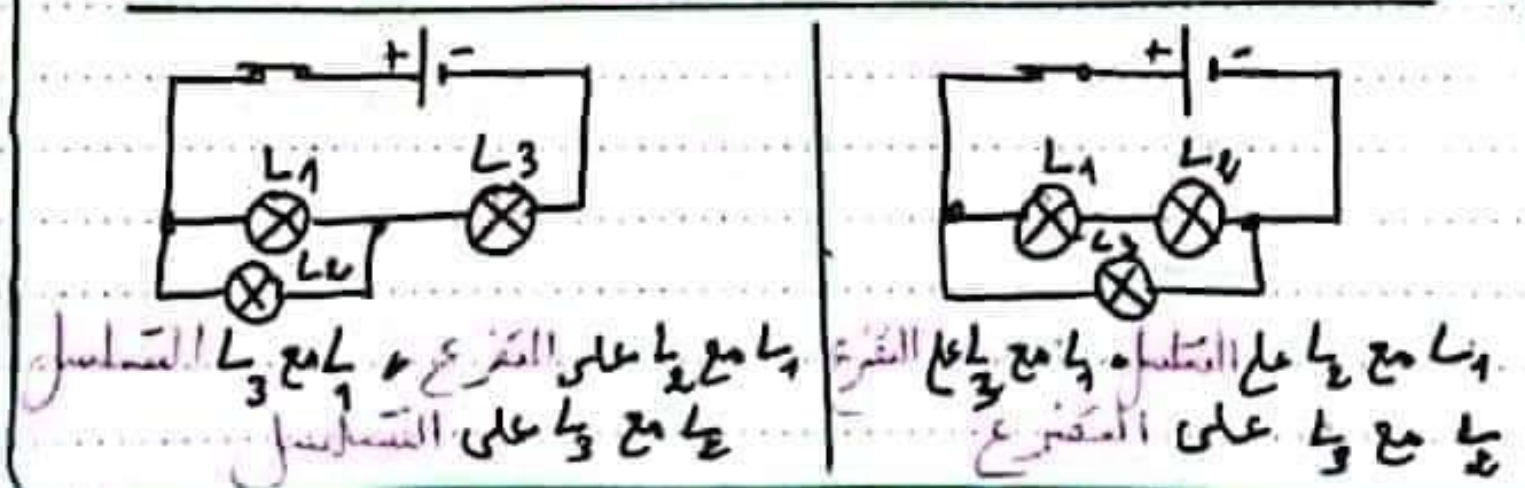 + -
L1 L2
L3
L1 مع L2 على التسلسل، L1 مع L3 على التفرع
L2 مع L3 على التفرع
+ -
L1 L3
L2
L1 مع L2 على التفرع، L1 مع L3 التسلسل
L2 مع L3 على التسلسل